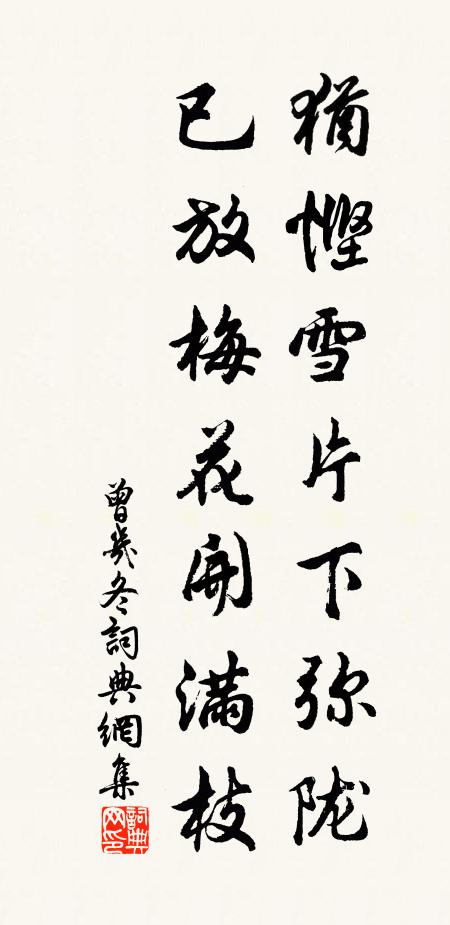 猶慳雪片下弥陇
已放梅花開满枝
曾幾冬詞典網集
詞典网印